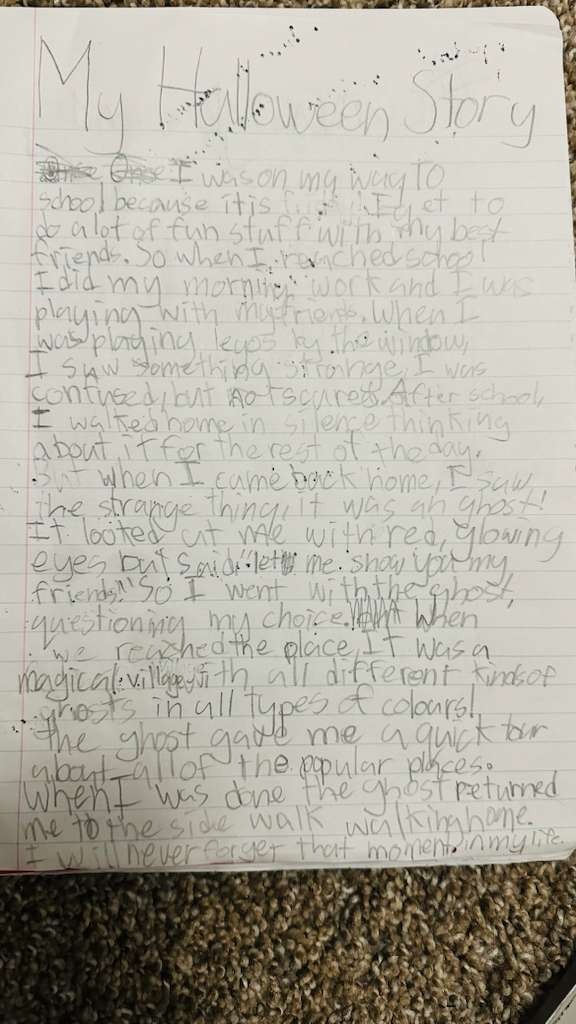 My Halloween Story
I was on my way to
school because it is I get to
do a lot of fun stuff with my best
friends. So when I reached school
I did my morning work and I was
playing with my friends. When I
was playing legos by the window,
I saw something strange, I was
confused, but not scared. After school,
I walked home in silence thinking
about it for the rest of the day.
But when I came back home, I saw
the strange thing, it was an ghost!
It looked at me with red, glowing
eyes but said "let me show you my
friends!" So I went with the ghost,
questioning my choice. When
we reached the place, It was a
magical village with all different kinds of
ghosts in all types of colours!
The ghost gave me a quick tour
about all of the popular places.
When I was done the ghost returned
me to the side walk walking home.
I will never forget that moment in my life.